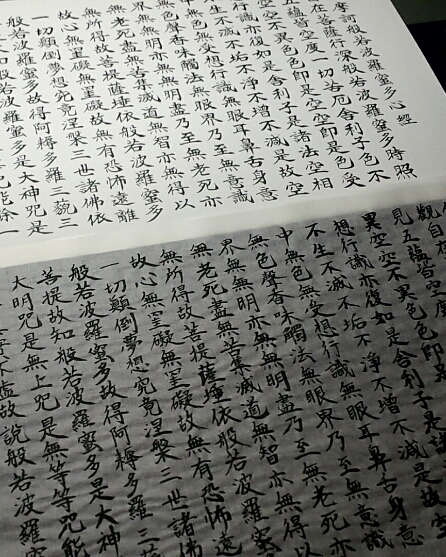 摩訶般若波羅蜜多心經
在菩薩行深般若波羅蜜多時照
五蘊皆空度一切苦厄舍利子色不
空不異色色即是空空即是色受
行識亦復如是舍利子是諸法空相
生不滅不垢不淨不增不減是故空
無色無受想行識無眼耳鼻舌身意
無色聲香味觸法無眼界乃至無意識
無無明亦無無明盡乃至無老死亦
無老死盡無苦集滅道無智亦無得以
無所得故菩提薩埵依般若波羅蜜多
故心無罣礙無罣礙故無有恐怖遠離
一切顛倒夢想究竟涅槃三世諸佛依
般若波羅蜜多故得阿耨多羅三藐三
般若波羅蜜多是大神咒是
咒能除一
觀自在
見五蘊皆空度
異空空不異色色即是空
想行識亦復如是舍利子是諸
不生不滅不垢不淨不增不減是故空
中無色無受想行識無眼耳鼻舌身意
無色聲香味觸法無眼界乃至無意識
界無無明亦無無明盡乃至無老死亦
無老死盡無苦集滅道無智亦無得以
無所得故菩提薩埵依般若波羅蜜
故心無罣礙無罣礙故無有恐怖遠
一切顛倒夢想究竟涅槃三世諸佛
般若波羅蜜多故得阿耨多羅三藐
菩提故知般若波羅蜜多是大神
大明咒是無上咒是無等等咒能
虛故說般若波羅蜜